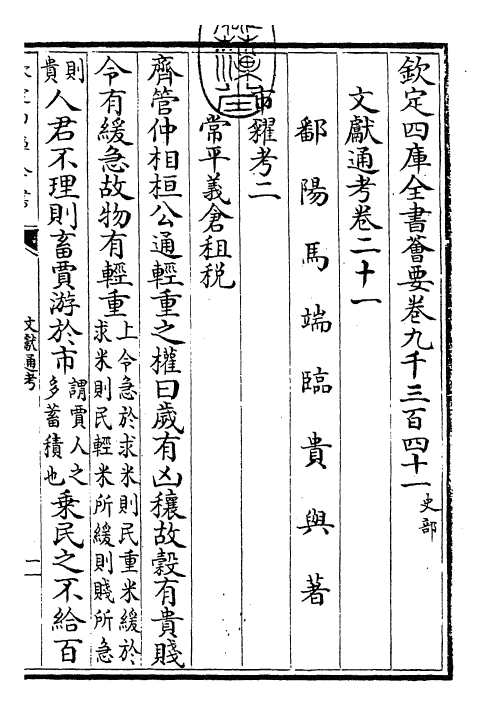 欽定四庫全書薈要卷九千三百四十一史部
文獻通考卷二十一
鄱陽馬端臨貴與著
市糴考二
常平義倉租税
齊管仲相桓公通輕重之權曰歲有凶穰故穀有貴賤
令有緩急故物有輕重上令急於求米則民重米緩於求米則民輕米所緩則賤所急
則貴人君不理則畜賈游於市謂賈人之多蓄積也乗民之不給百
文獻通考
一